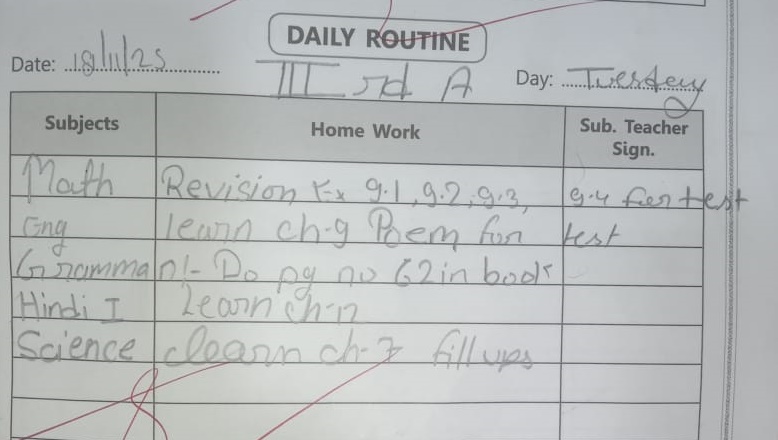 DAILY ROUTINE
Date: 18/11/25 III rd A Day: Tuesday
Subjects Home Work Sub. Teacher Sign.
Math Revision Ex 9.1, 9.2, 9.3, 9.4 for test
Eng learn ch-9 Poem for test
Gramman!- Do pg no 62 in book
Hindi I Learn ch-12
Science learn ch-7 fill ups